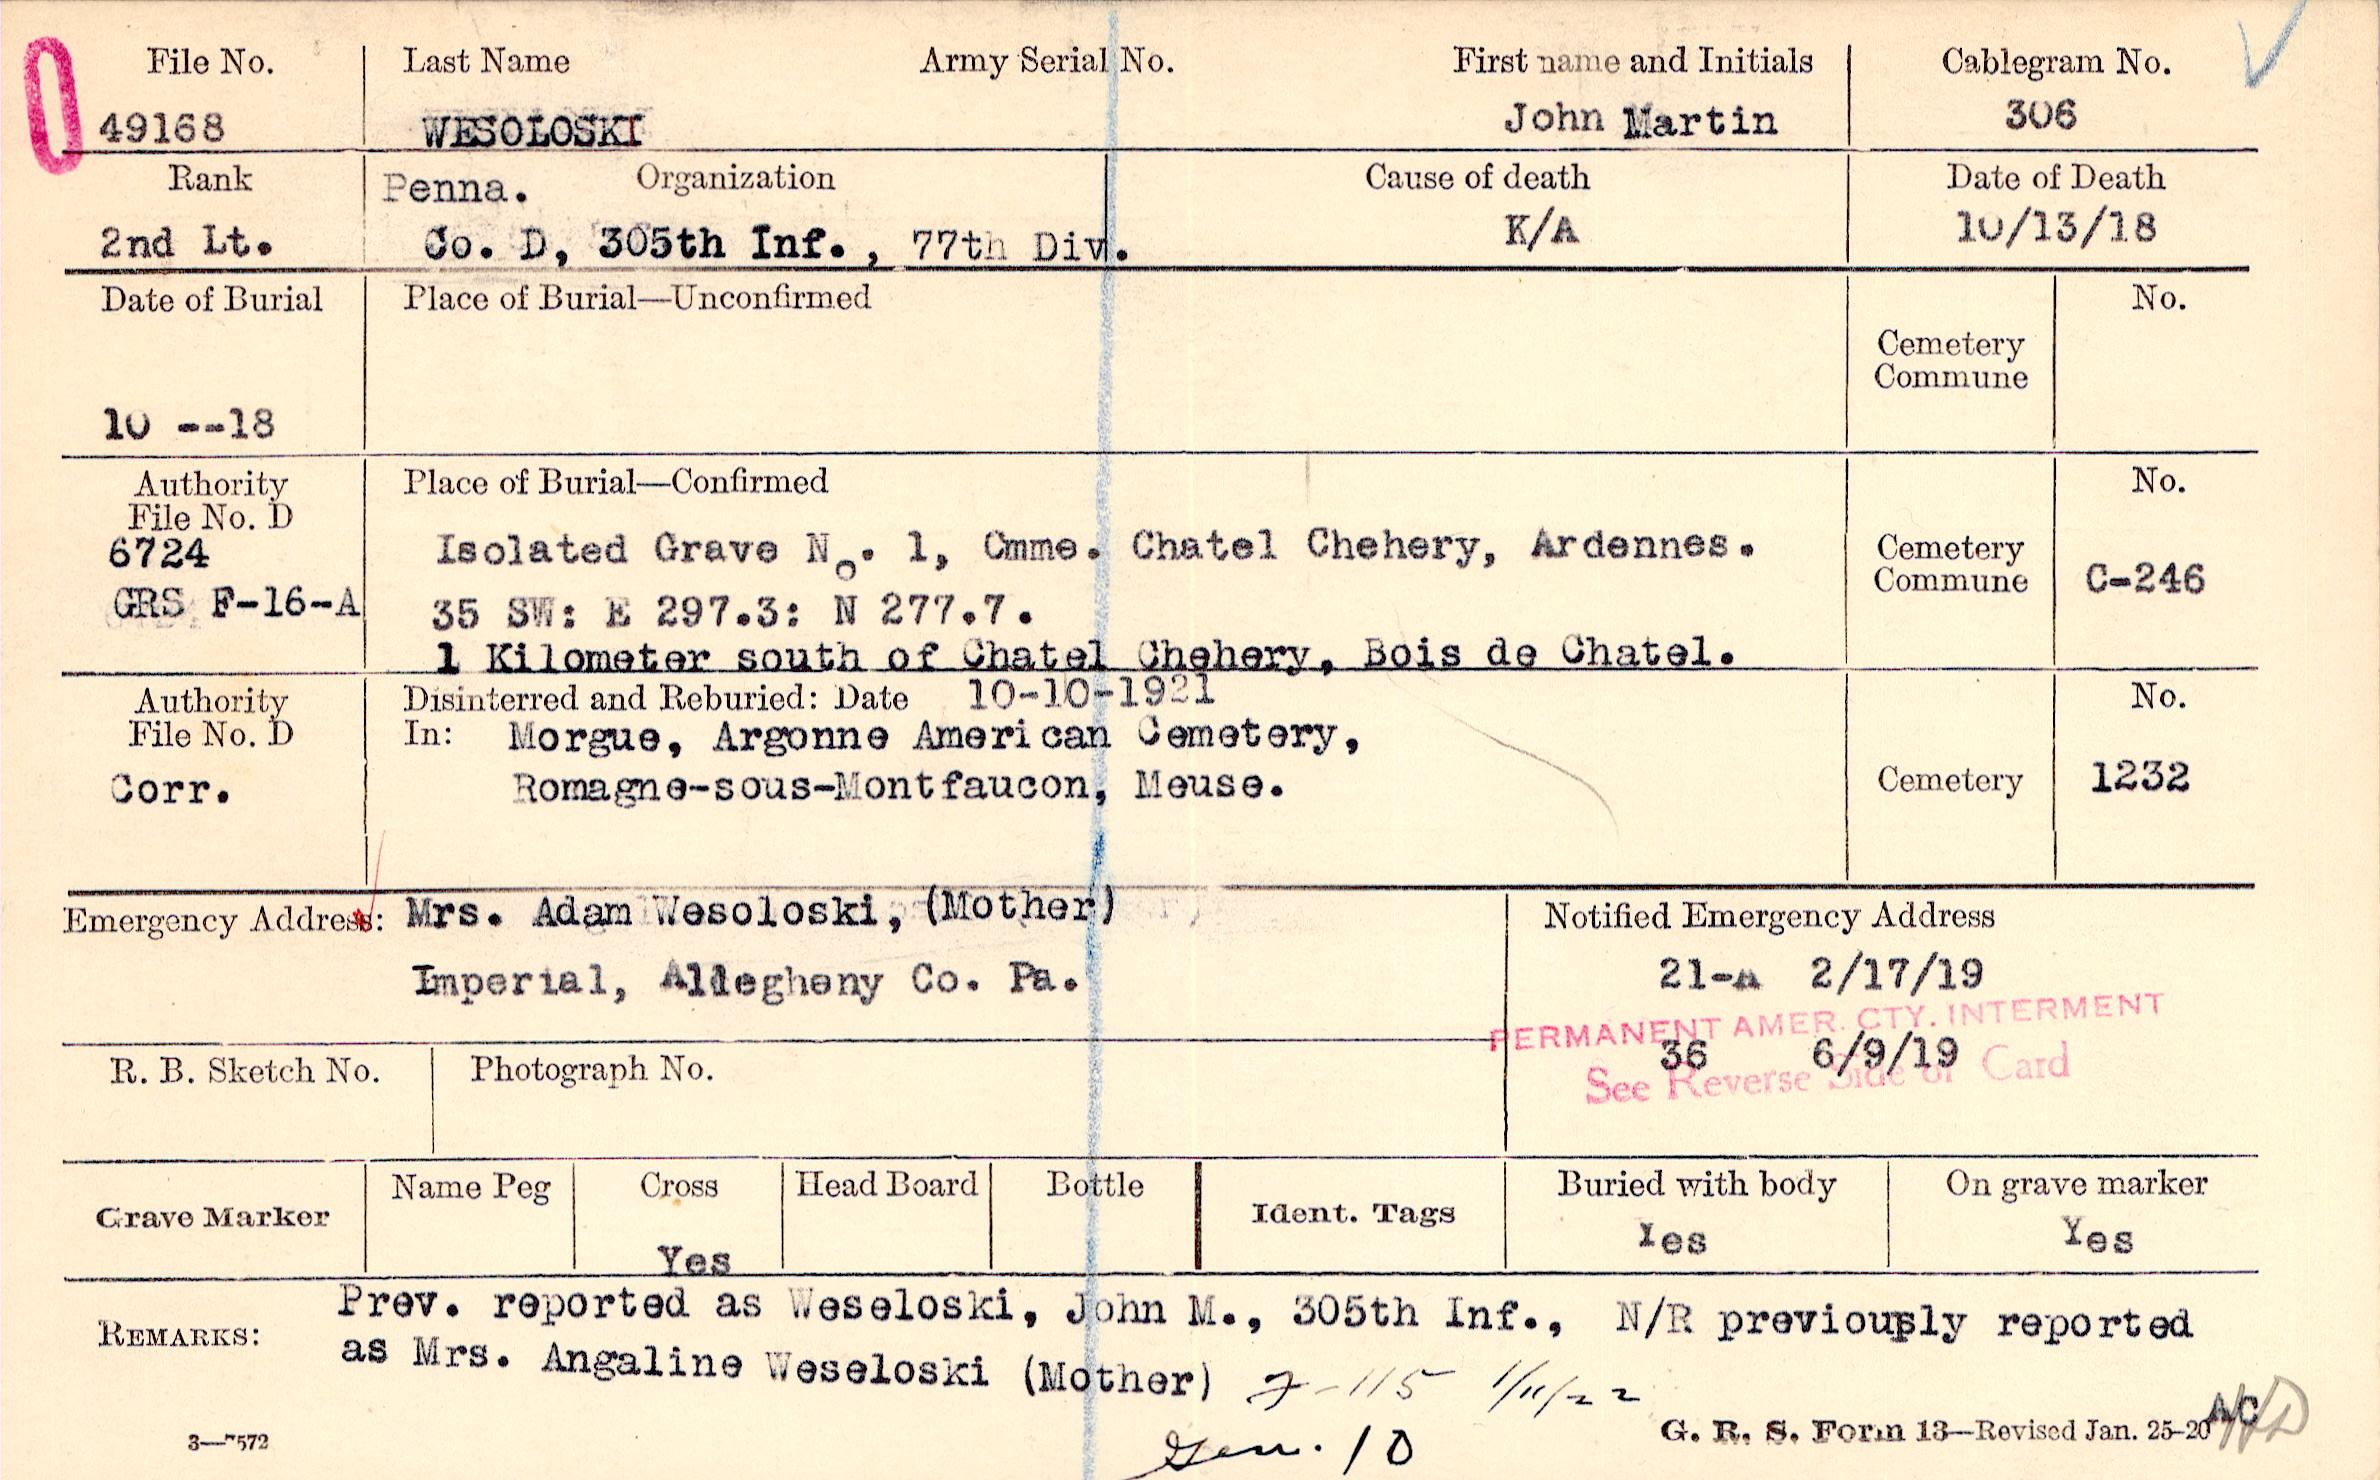 File No. Last Name Army Serial No. First name and Initials Cablegram No.
49168 WESOLOSKI John Martin 306
Rank Penna. Organization Cause of death Date of Death
2nd Lt. Co. D, 305th Inf., 77th Div. K/A 10/13/18
Date of Burial Place of Burial—Unconfirmed No.
Cemetery
Commune
10 --18
Authority Place of Burial—Confirmed No.
File No. D
6724 Isolated Grave No. 1, Cmme. Chatel Chehery, Ardennes. Cemetery
Commune C-246
GRS F-16-A 35 SW: E 297.3: N 277.7.
1 Kilometer south of Chatel Chehery, Bois de Chatel.
Authority Disinterred and Reburied: Date 10-10-1921 No.
File No. D In: Morgue, Argonne American Cemetery,
Corr. Romagne-sous-Montfaucon, Meuse. Cemetery 1232
Emergency Address: Mrs. Adam Wesoloski, (Mother) Notified Emergency Address
Imperial, Allegheny Co. Pa. 21-A 2/17/19
PERMANENT AMER. CTY. INTERMENT
36 6/9/19
See Reverse Side of Card
R. B. Sketch No. Photograph No.
Grave Marker Name Peg Cross Head Board Bottle Ident. Tags Buried with body On grave marker
Yes Yes Yes
REMARKS: Prev. reported as Weseloski, John M., 305th Inf., N/R previously reported
as Mrs. Angaline Weseloski (Mother) 7-115 1/11/22
10
3—7572 G. R. S. Form 13—Revised Jan. 25-20 AC